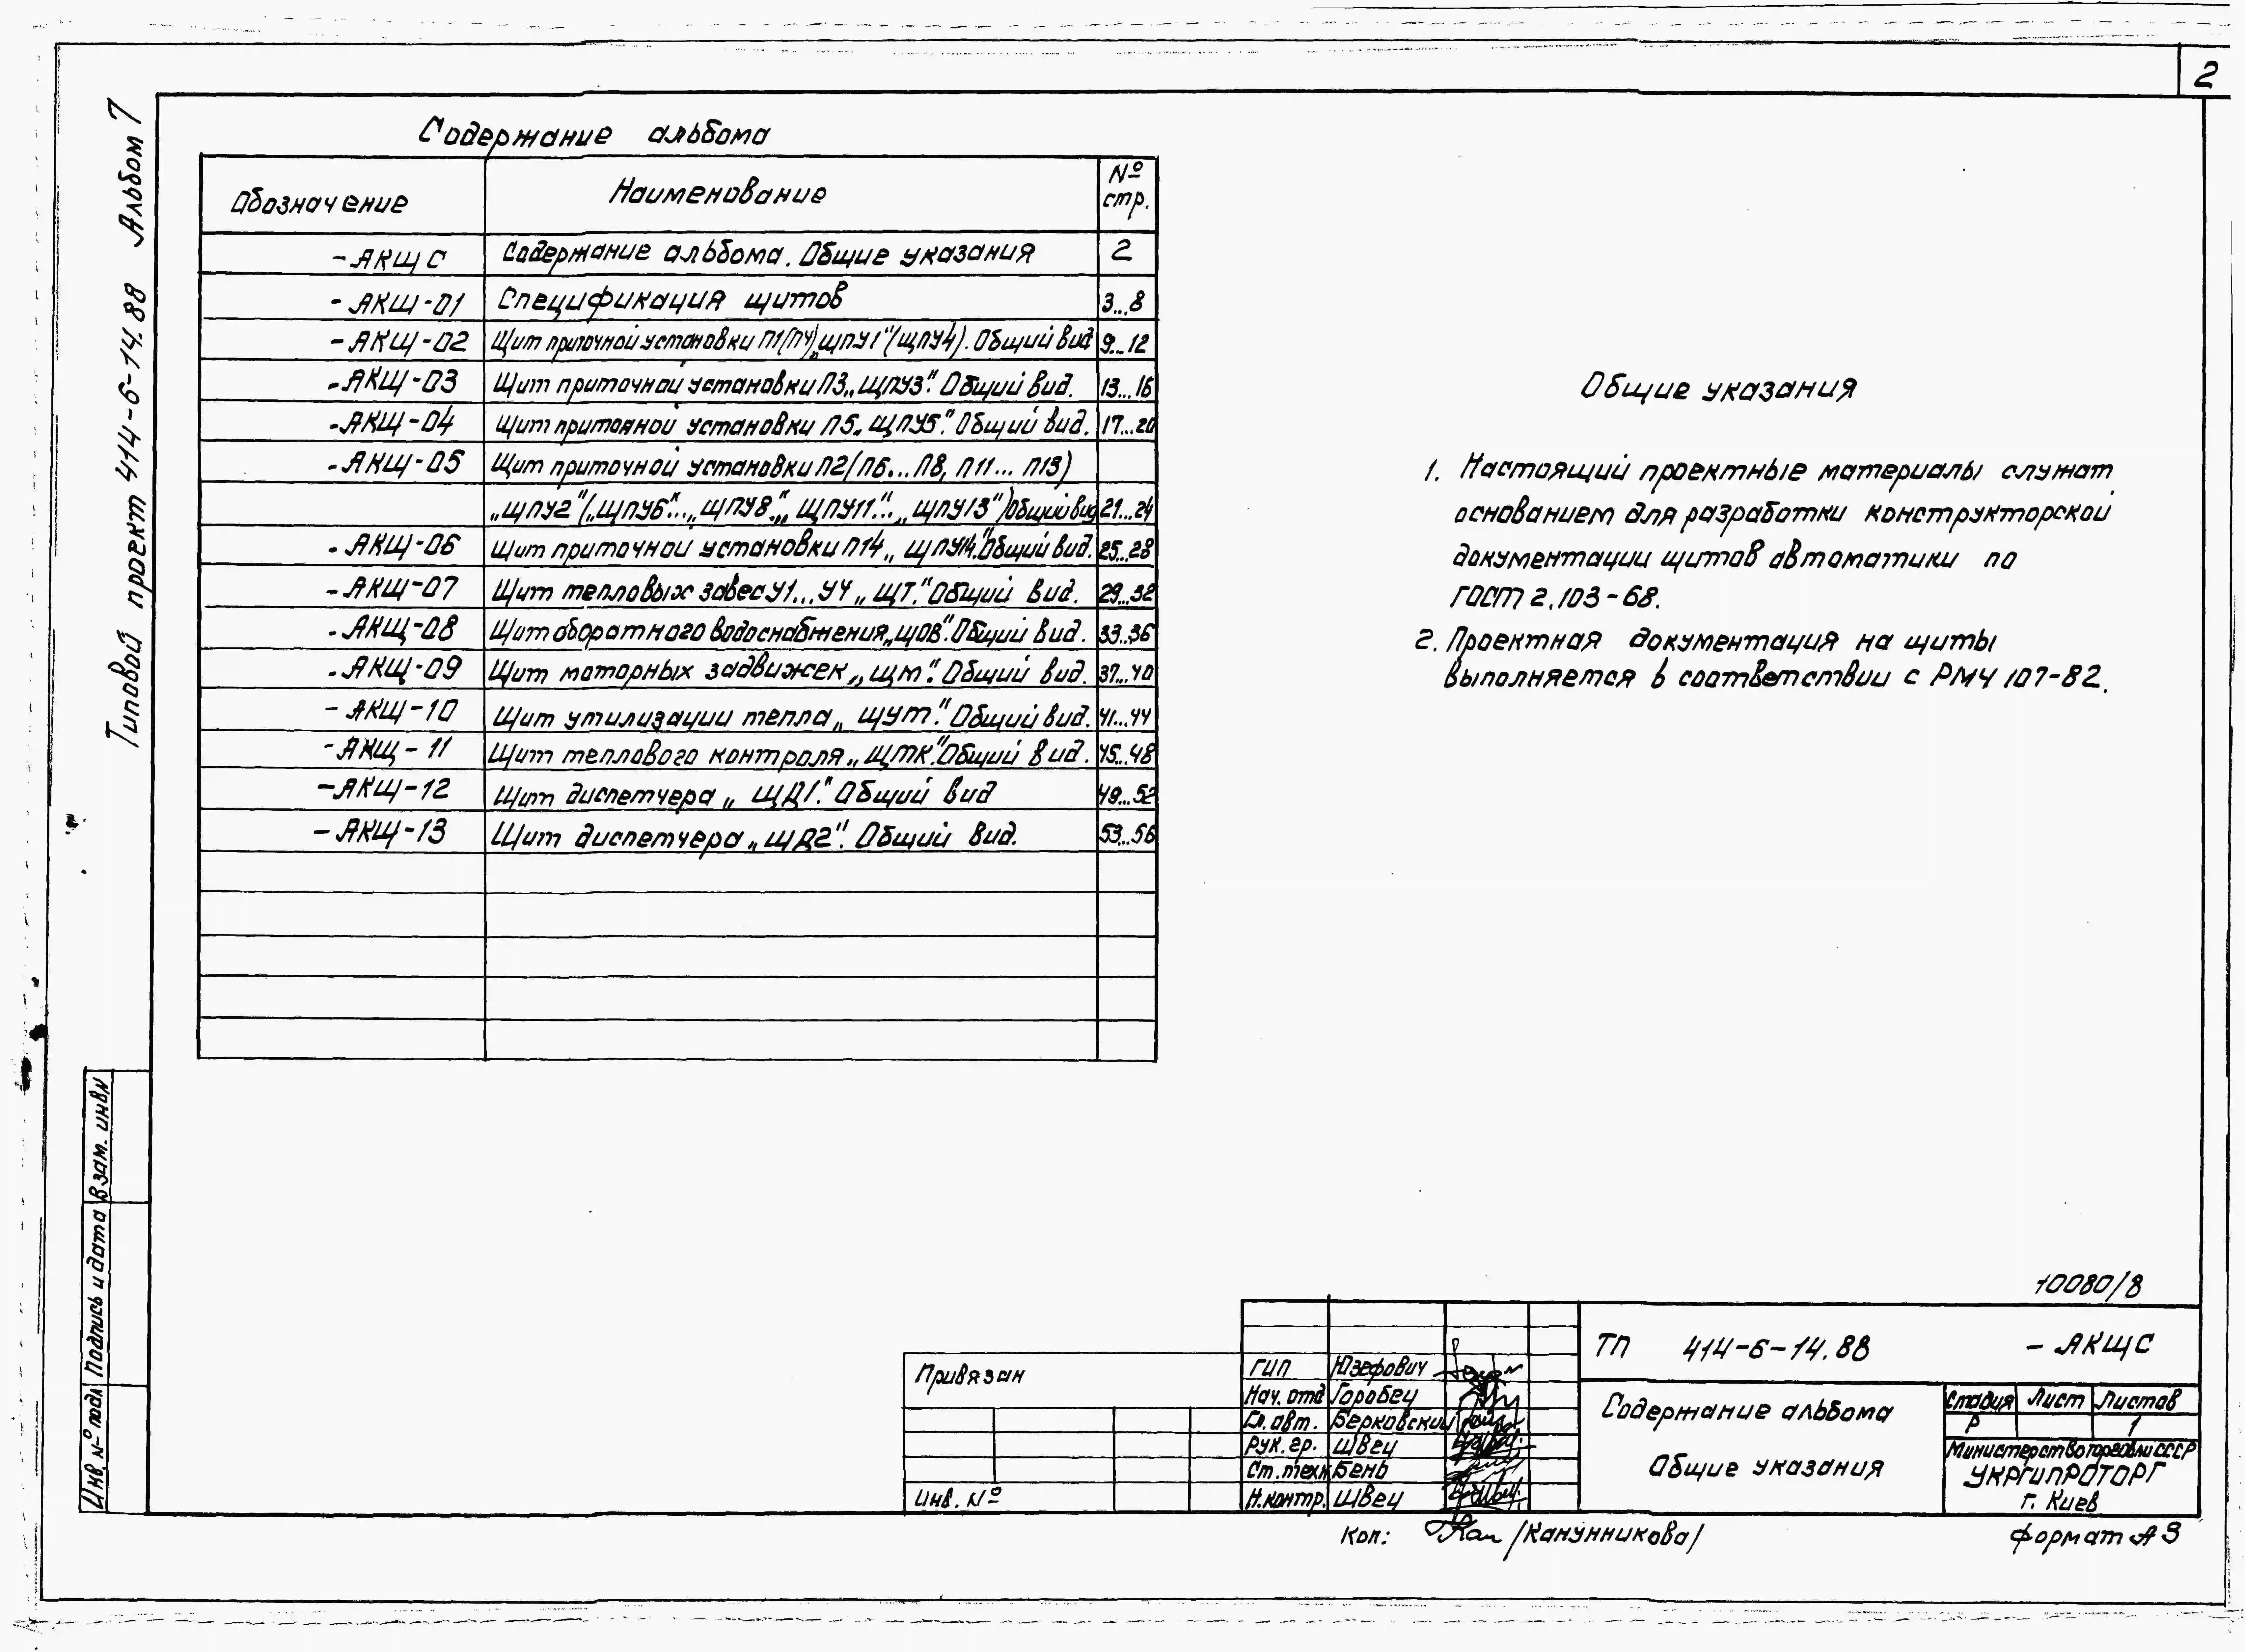 2
Типовой проект 414-6-14.88 Альбом 7
Содержание альбома
Обозначение Наименование № стр.
-АКЩ С Содержание альбома. Общие указания 2
-АКЩ-01 Спецификация щитов 3...8
-АКЩ-02 Щит приточной установки П1(П4) „ЩПУ1"(ЩПУ4). Общий вид 9...12
-АКЩ-03 Щит приточной установки П3 „ЩПУ3". Общий вид. 13...16
-АКЩ-04 Щит приточной установки П5 „ЩПУ5". Общий вид. 17...20
-АКЩ-05 Щит приточной установки П2(П6...П8, П11... П13)
„ЩПУ2"(„ЩПУ6"...„ЩПУ8", „ЩПУ11"...„ЩПУ13") Общий вид 21...24
-АКЩ-06 Щит приточной установки П14 „ЩПУ14". Общий вид. 25...28
-АКЩ-07 Щит тепловых завес У1...У4 „ЩТ". Общий вид. 29...32
-АКЩ-08 Щит оборотного водоснабжения „ЩОВ". Общий вид. 33...36
-АКЩ-09 Щит моторных задвижек „ЩМ". Общий вид. 37...40
-АКЩ-10 Щит утилизации тепла „ЩУТ". Общий вид. 41...44
-АКЩ-11 Щит теплового контроля „ЩТК". Общий вид. 45...48
-АКЩ-12 Щит диспетчера „ЩД1". Общий вид 49...52
-АКЩ-13 Щит диспетчера „ЩД2". Общий вид. 53...56
Общие указания
1. Настоящий проектные материалы служат
основанием для разработки конструкторской
документации щитов автоматики по
ГОСТ 2.103-68.
2. Проектная документация на щиты
выполняется в соответствии с РМ4 107-82.
Взам. инв. №
Подпись и дата
Инв. № подл
10080/8
Привязан
Инв. №
ГИП Юзефович
Нач. отд Горобец
Гл. авт. Берковский
Рук. гр. Швец
Ст. техн. Бень
Н. контр. Швец
ТП 414-6-14.88 -АКЩС
Содержание альбома
Общие указания
Стадия Лист Листов
Р 1
Министерство торговли СССР
УКРГИПРОТОРГ
г. Киев
Коп: /Канунникова/
Формат А3